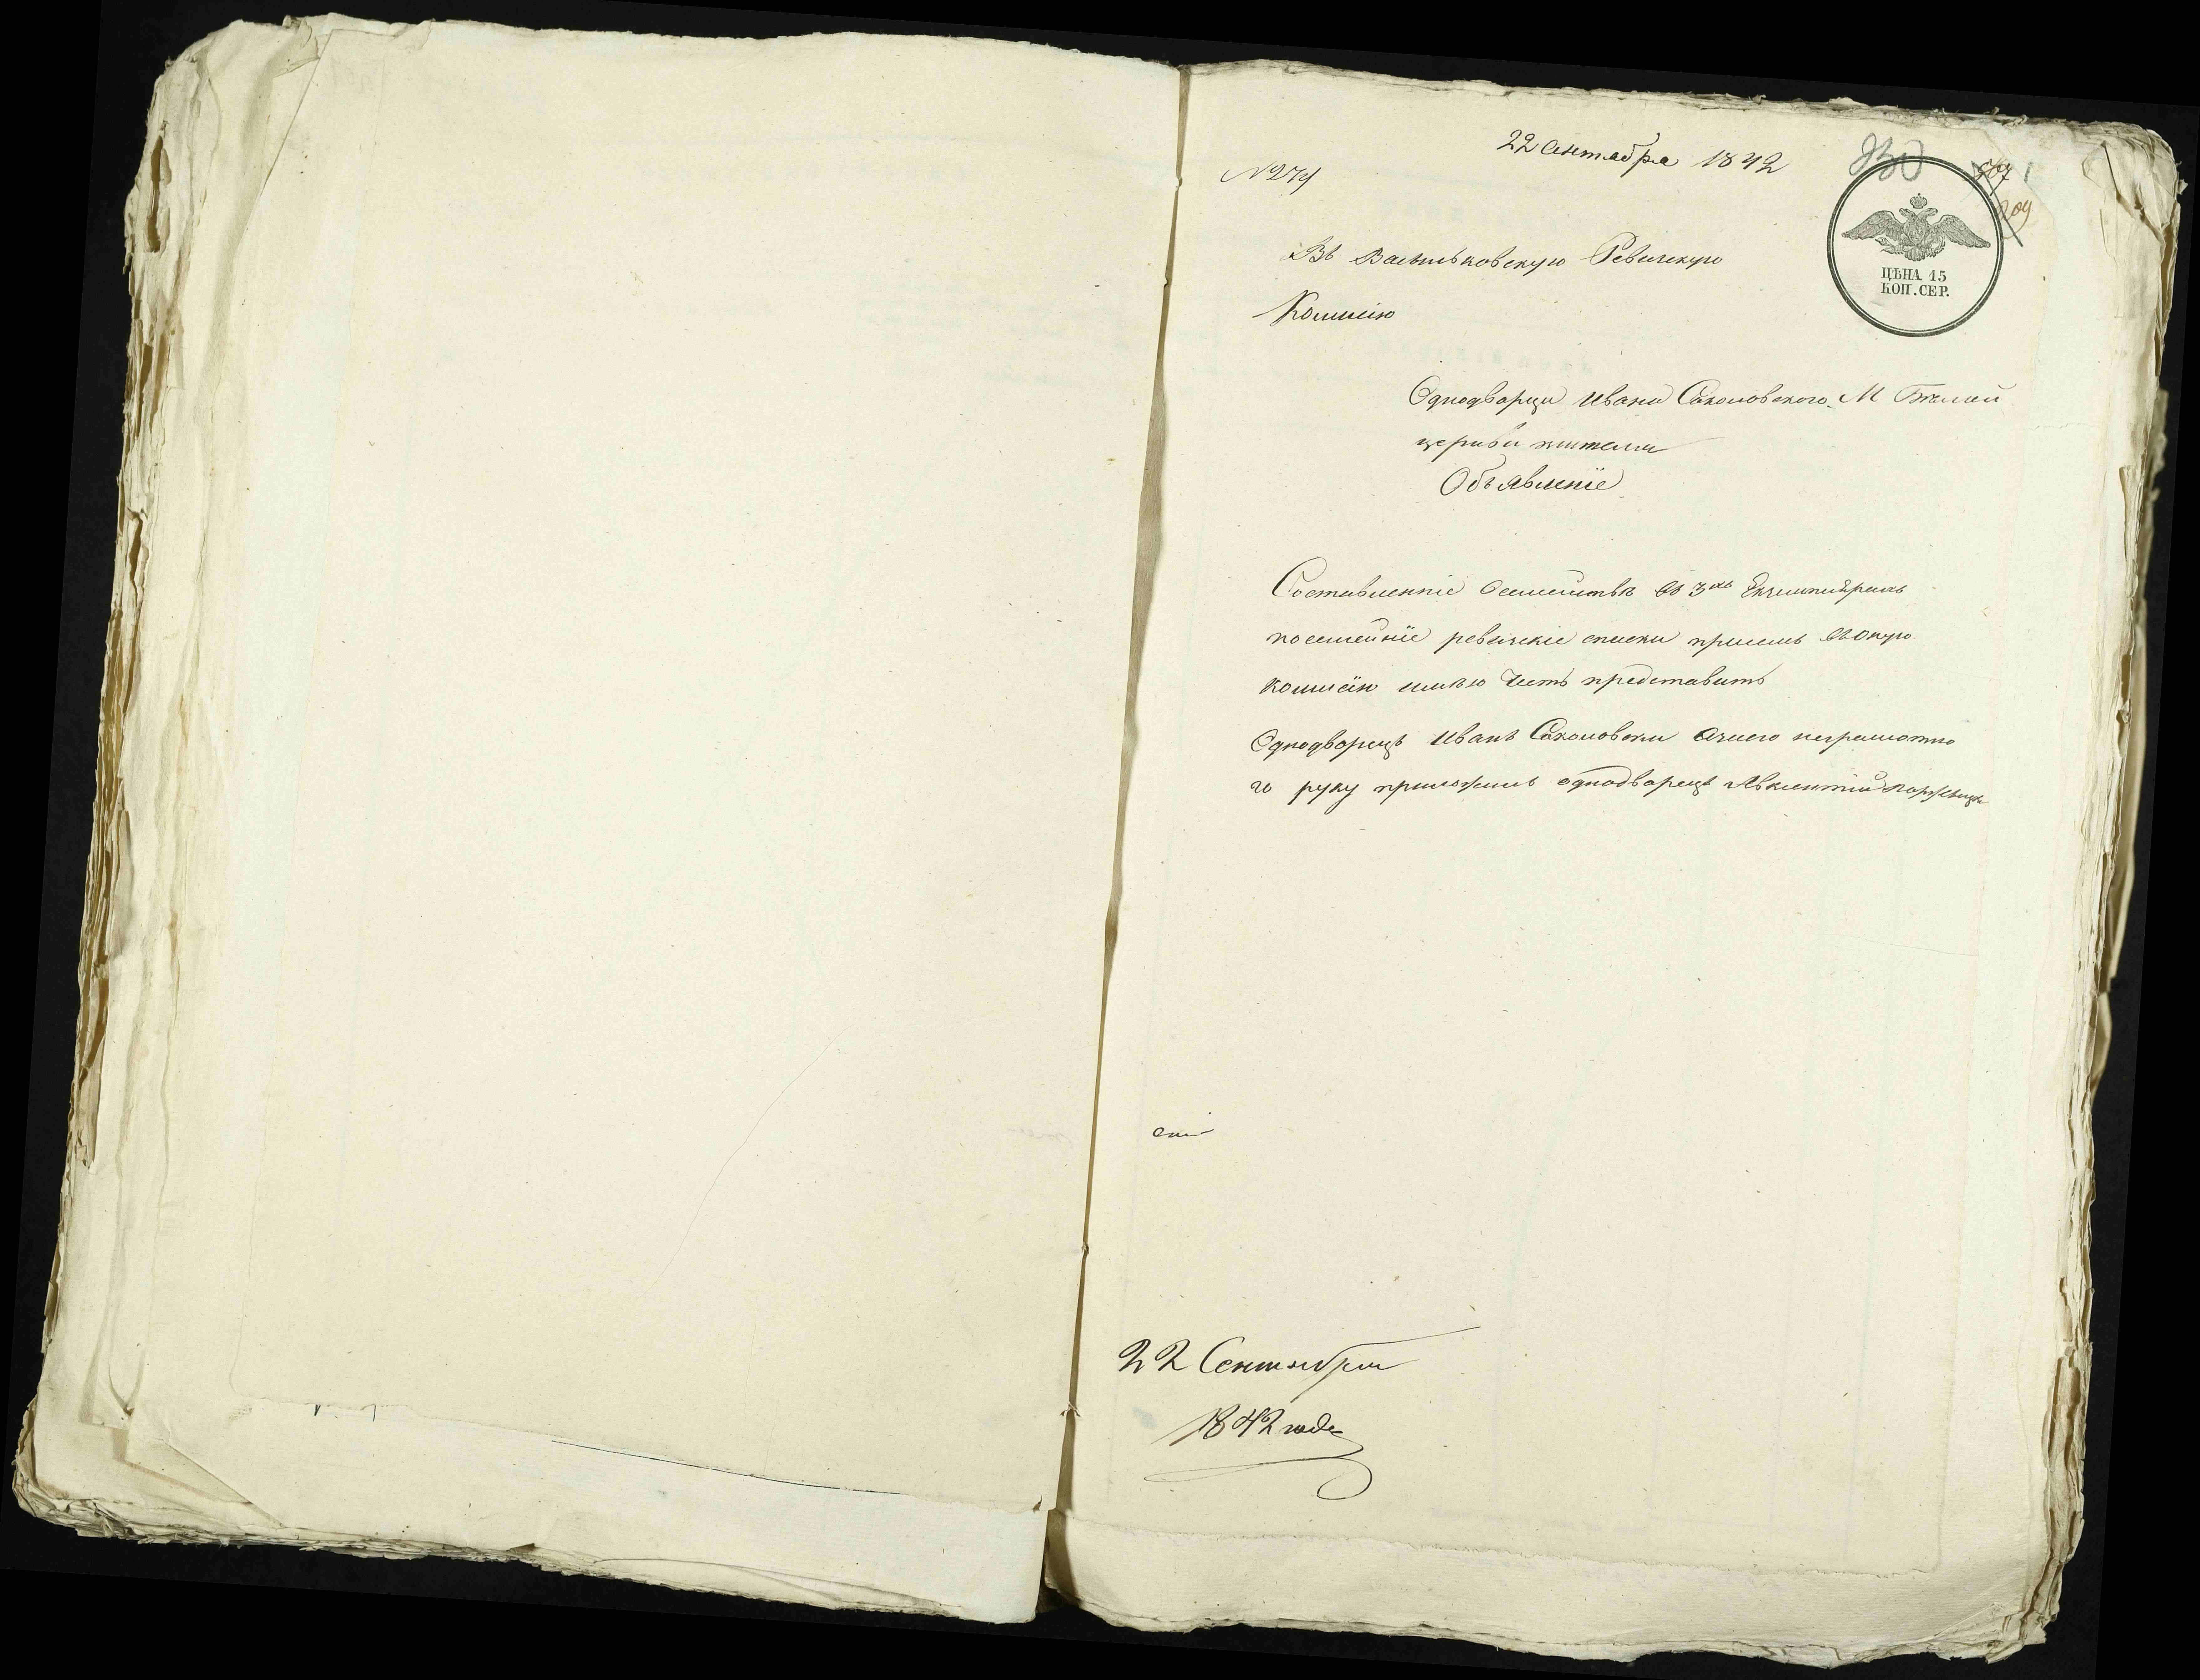 22 Сентабра 1842
№ 274
330
209
ЦѢНА 15
КОП. СЕР.
Въ Васильковскую Ревизскую
Комисію
Однодворца Ивана Соколовского М Бѣлой
церкви жителя
Объявленіе
Составленніе Семейству въ 3хъ Екземплярахъ
посемейніе ревизскіе списки присемъ въ оную
комисію имѣю честь представить
Однодворецъ Иванъ Соколовски азанего неграмотно
го руку приложилъ однодворецъ Авксентій
22 Сентября
1842 года